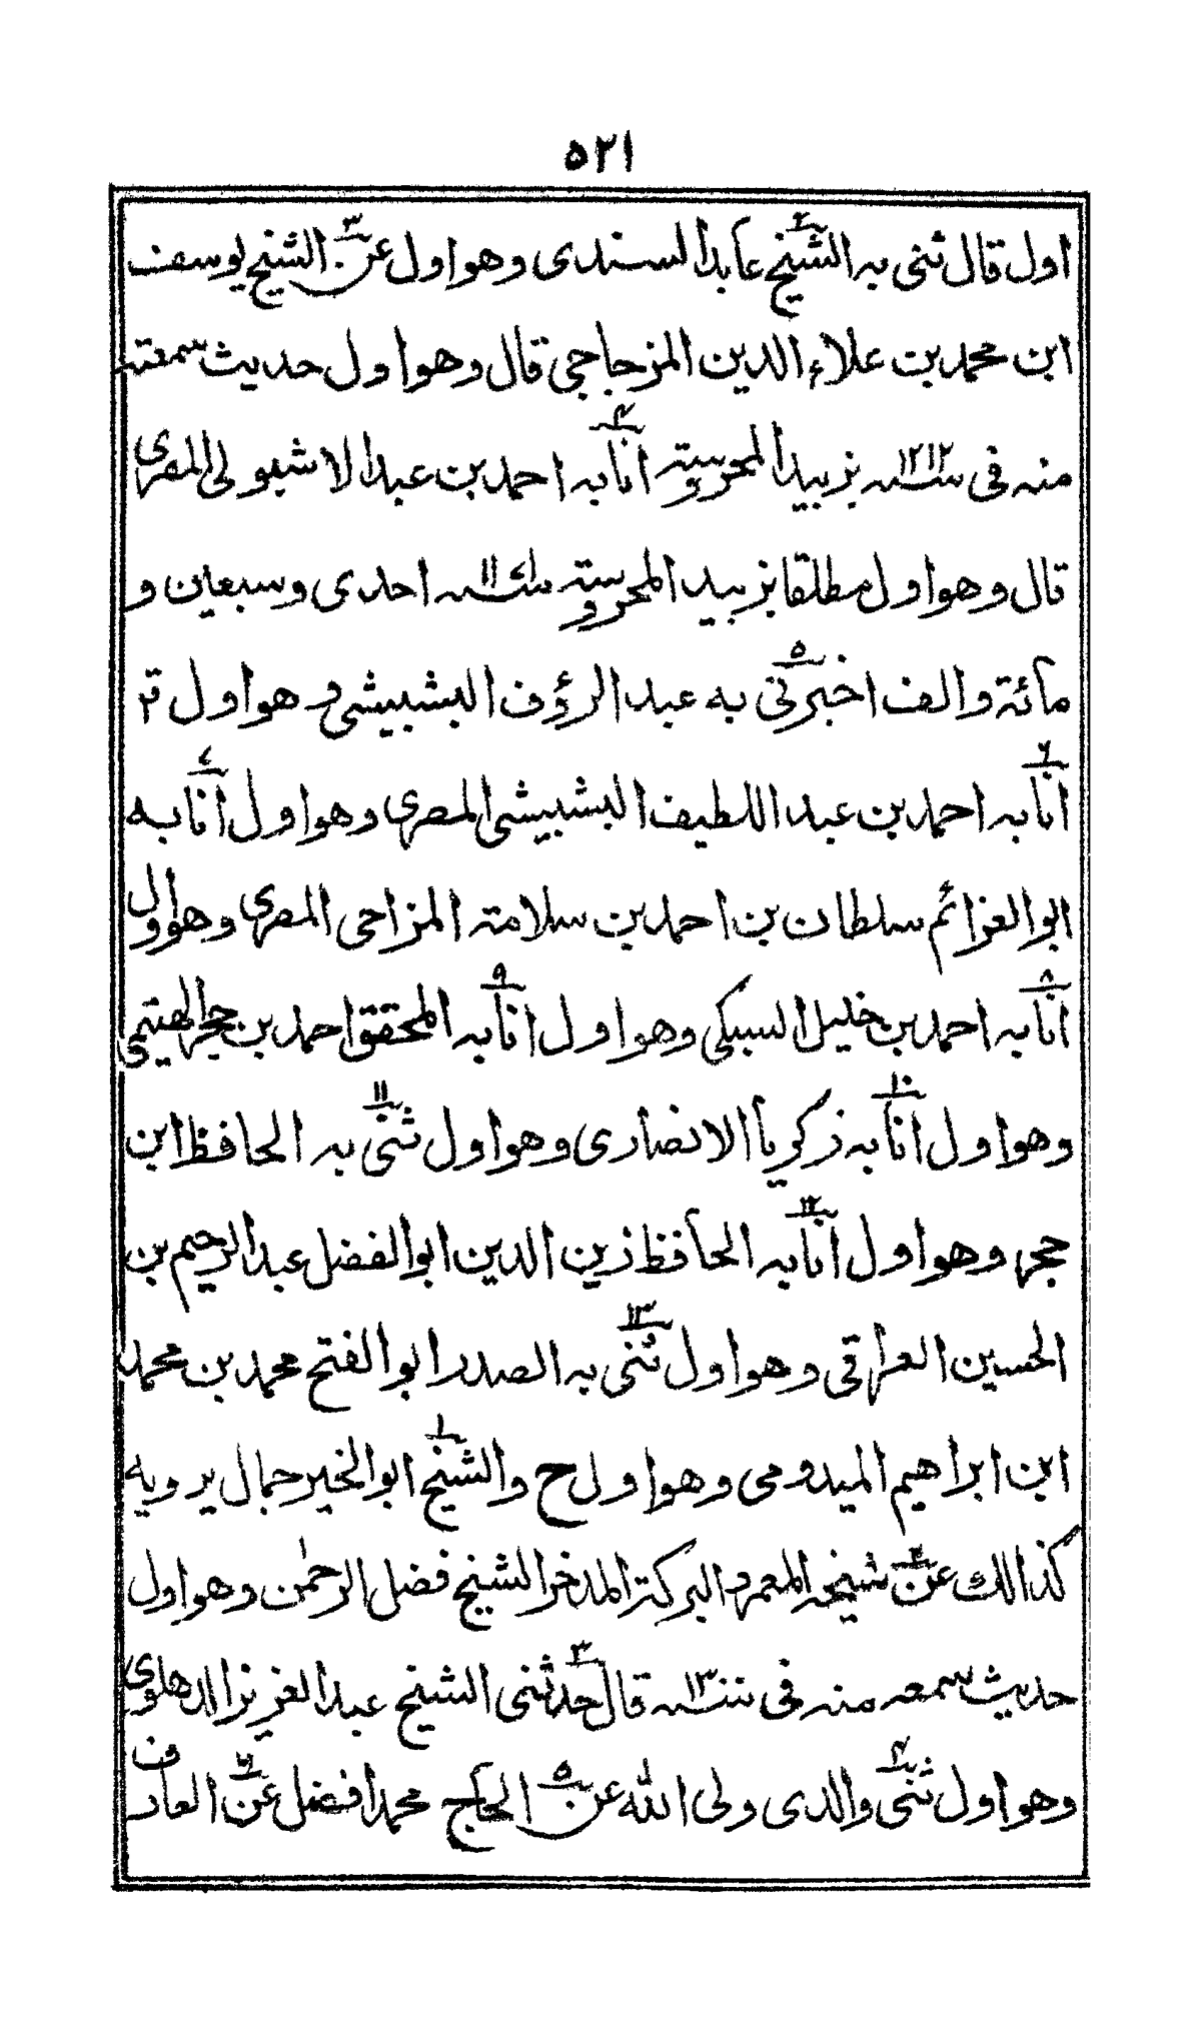 ٥٢١
اول قال ثنى به الشيخ عابد السندى وهو اول عن الشيخ يوسف
ابن محمد بن علاء الدين المزجاجي قال وهو اول حديث سمعته
منه فى سنه ١٢١٢ بزبيد المحروسته انا به احمد بن عبد الاشبولى المصرى
قال وهو اول مطلقا بزبيد المحروسته سنه احدى وسبعين و
مائة والف اخبرنى به عبد الرؤف البشبيشى وهو اول
انا به احمد بن عبد اللطيف البشبيشى المصرى وهو اول انا به
ابو العزائم سلطان بن احمد بن سلامته المزاحى المصرى وهو اول
انا به احمد بن خليل السبكى وهو اول انا به المحقق احمد بن حجر الهيتمى
وهو اول انا به زكريا الانصارى وهو اول ثنى به الحافظ ابن
حجر وهو اول انا به الحافظ زين الدين ابو الفضل عبد الرحيم بن
الحسين العراقى وهو اول ثنى به الصدر ابو الفتح محمد بن محمد
ابن ابراهيم الميدومى وهو اول ح والشيخ ابو الخير جمال يرويه
كذالك عن شيخه المعمر والبركته المدخر الشيخ فضل الرحمٰن وهو اول
حديث سمعه منه فى سنه قال حدثنى الشيخ عبد العزيز الدهلوى
وهو اول ثنى والدى ولى الله عن الحاج محمد افضل عن العارف